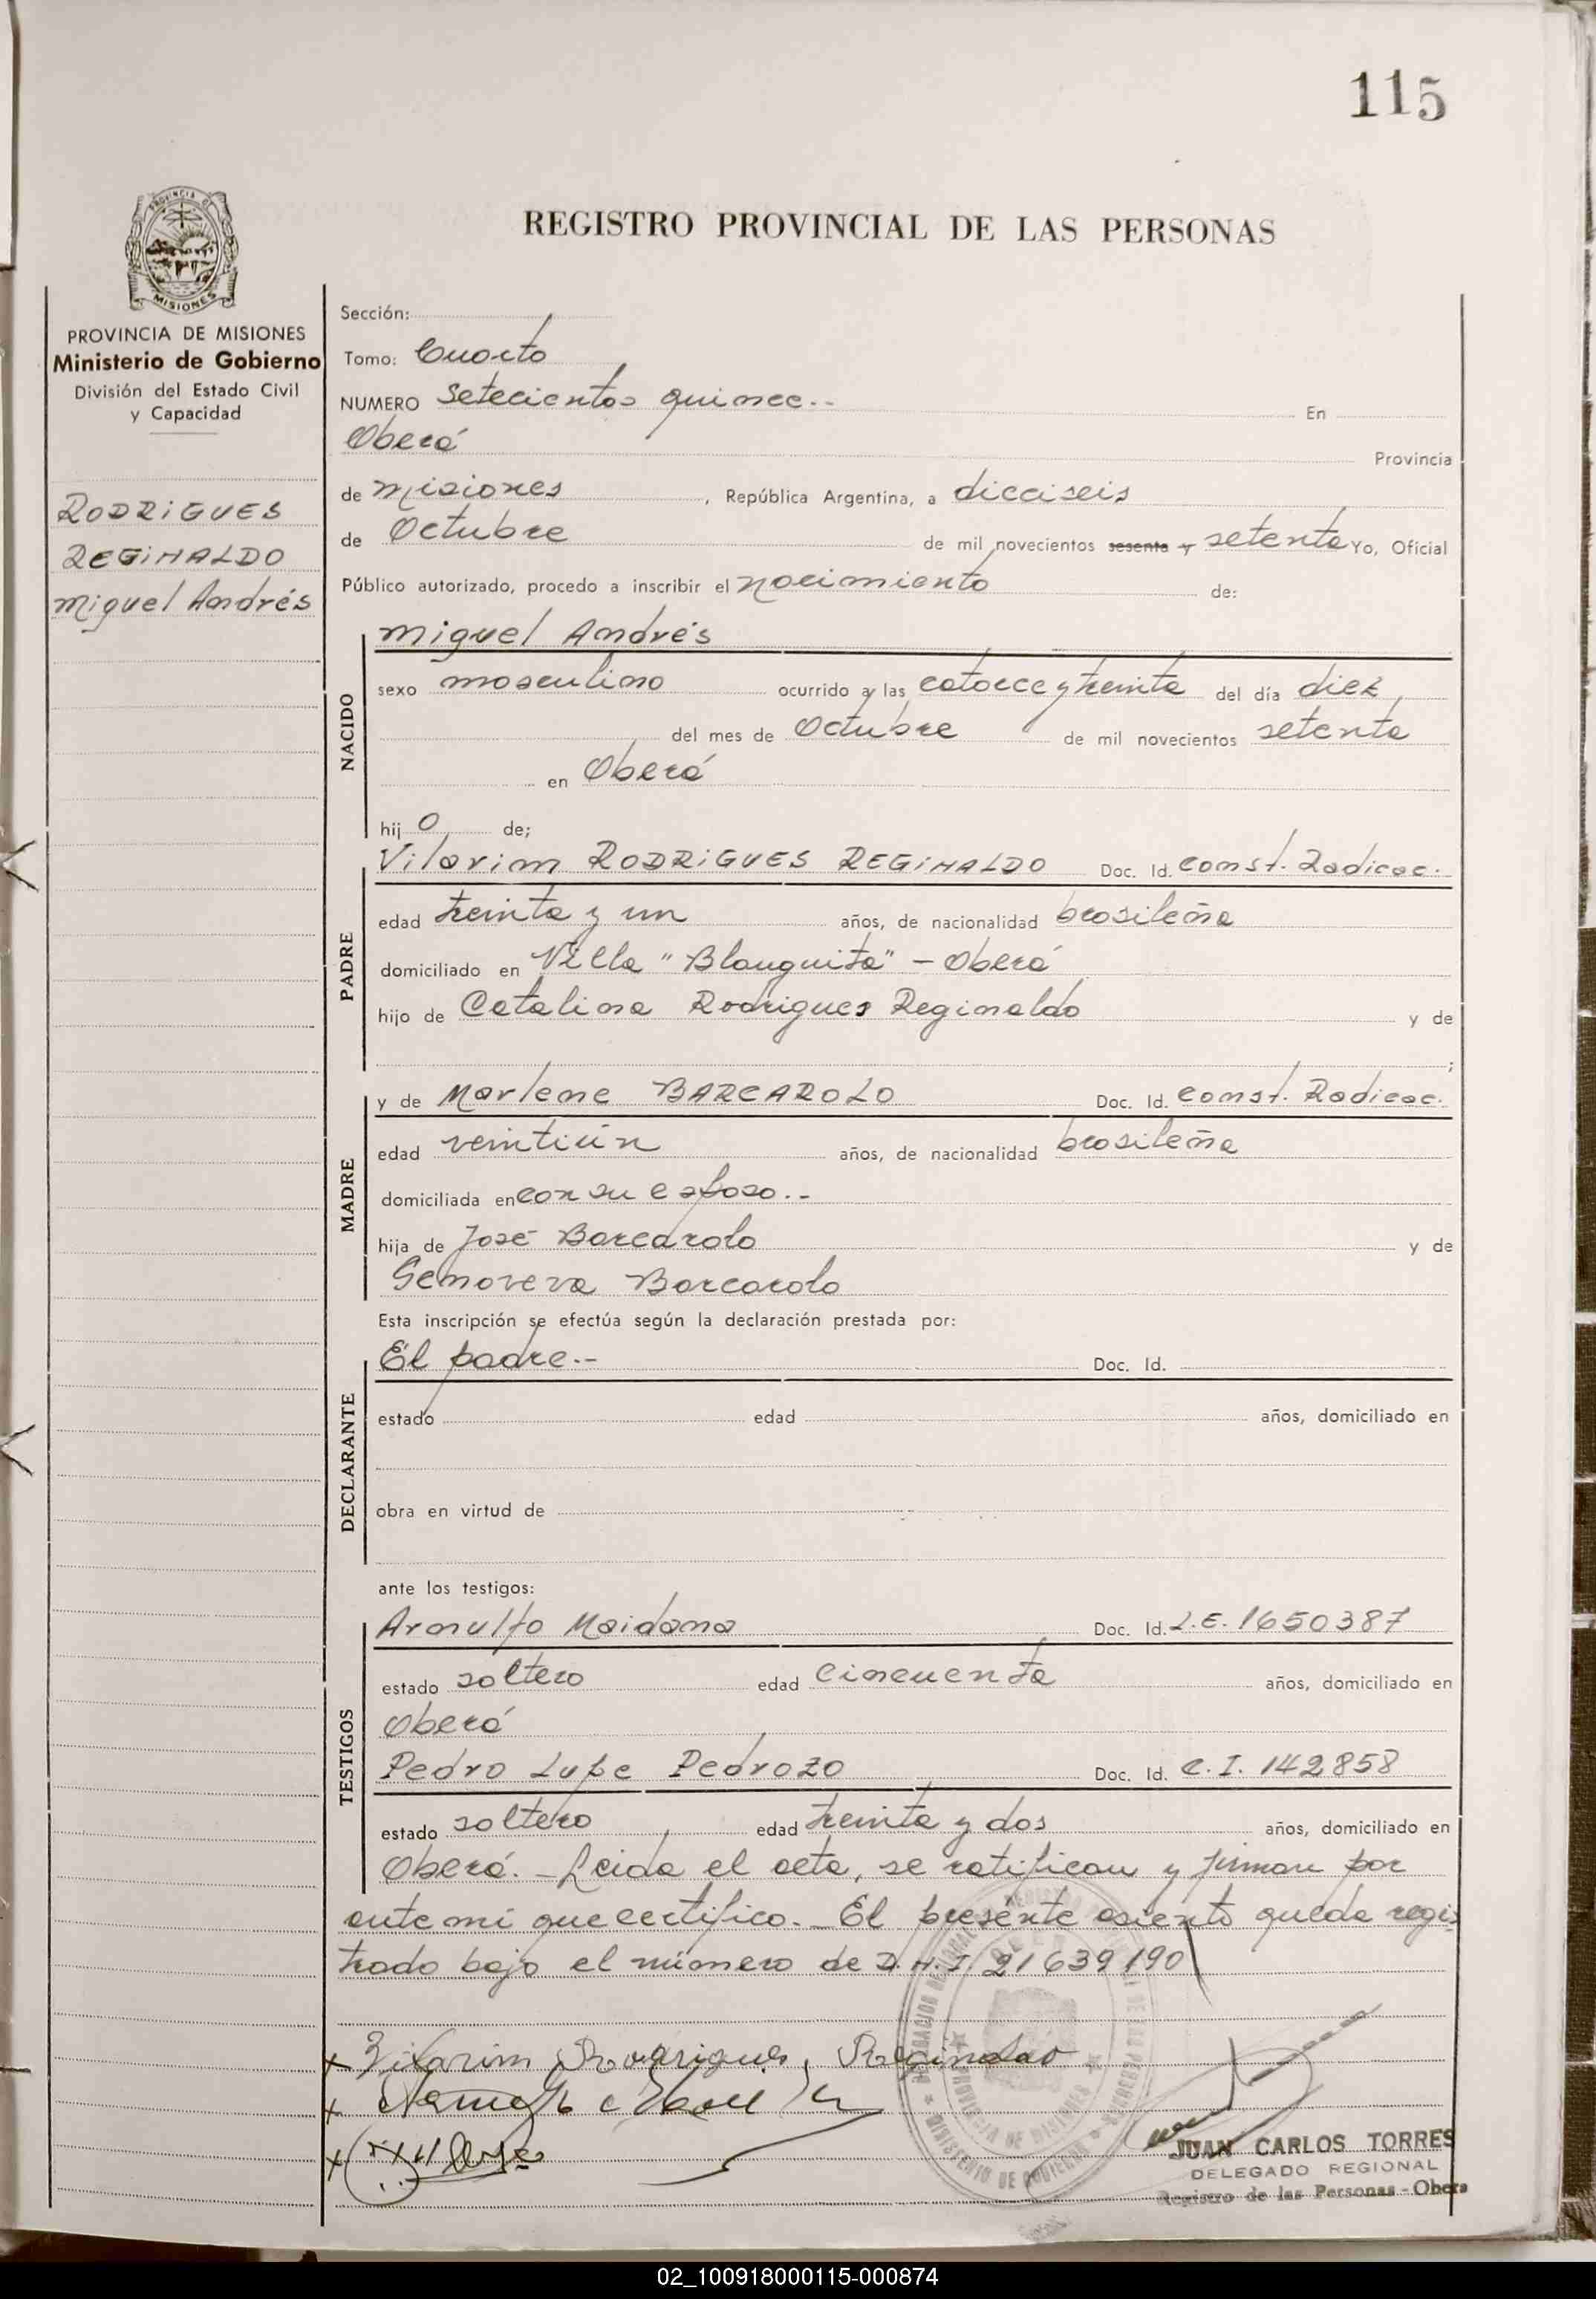 115
PROVINCIA DE MISIONES
REGISTRO PROVINCIAL DE LAS PERSONAS
PROVINCIA DE MISIONES
Ministerio de Gobierno
División del Estado Civil
y Capacidad
RODRIGUES
REGINALDO
Miguel Andrés
Sección:
Tomo: Cuarto
NUMERO Setecientos quince.- En
Oberá Provincia
de Misiones, República Argentina, a dieciseis
de Octubre de mil novecientos sesenta y setenta Yo, Oficial
Público autorizado, procedo a inscribir el nacimiento de:
NACIDO
Miguel Andrés
sexo masculino ocurrido a las catorce y treinta del día diez
del mes de Octubre de mil novecientos setenta
en Oberá
hij o de;
PADRE
Vilarim RODRIGUES REGINALDO Doc. Id. Const. Radicac.
edad treinta y un años, de nacionalidad brasileña
domiciliado en Villa "Blanquita" - Oberá
hijo de Catalina Rodrigues Reginaldo y de
;
MADRE
y de Marlene BARCAROLO Doc. Id. Const. Radicac.
edad veintiún años, de nacionalidad brasileña
domiciliada en con su esposo.-
hija de José Barcarolo y de
Genoveva Barcarolo
Esta inscripción se efectúa según la declaración prestada por:
DECLARANTE
El padre.- Doc. Id.
estado edad años, domiciliado en
obra en virtud de
ante los testigos:
TESTIGOS
Arnulfo Maidana Doc. Id. L.E. 1650387
estado soltero edad cincuenta años, domiciliado en
Oberá
Pedro Lupe Pedrozo Doc. Id. C.I. 142858
estado soltero edad treinta y dos años, domiciliado en
Oberá.- Leida el acta, se ratifican y firman por
ante mí que certifico.- El presente asiento queda regis
trado bajo el número de D.N.I. 21639190
x Vilarim Rodrigues Reginaldo
x
x
JUAN CARLOS TORRES
DELEGADO REGIONAL
Registro de las Personas - Obera
02_100918000115-000874